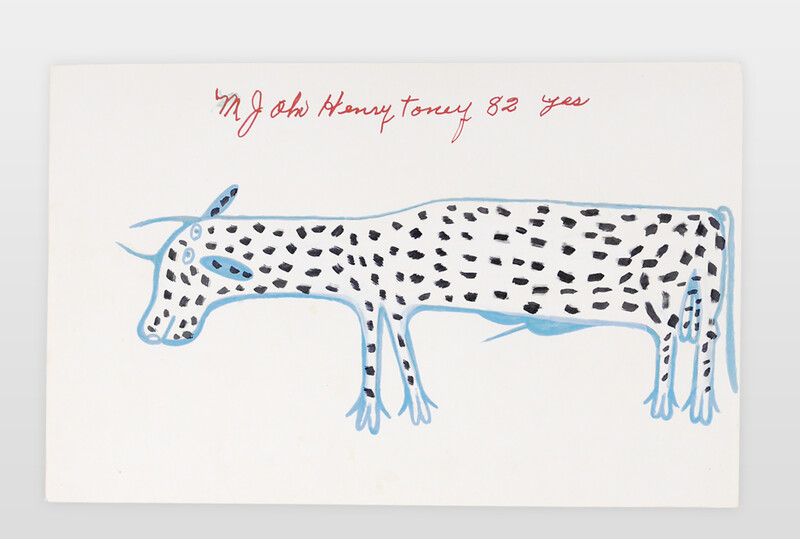 Mr John Henry Toney 82 yes